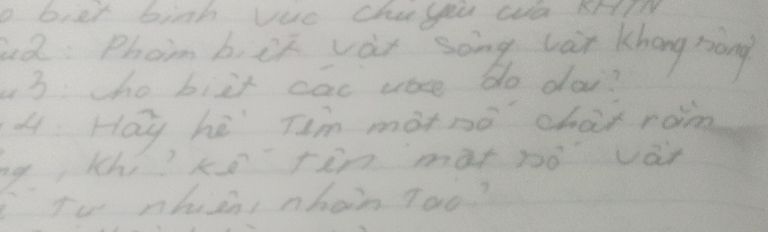 biết bình vực chủ yếu của KHTN
2: Phâm biết vật sống vật không sống
3: cho biết các đo dài?
4: Hãy hê Tên một số chất rắn
, khí? kể tên một số vật
Tư nhiên, nhân Tạo?